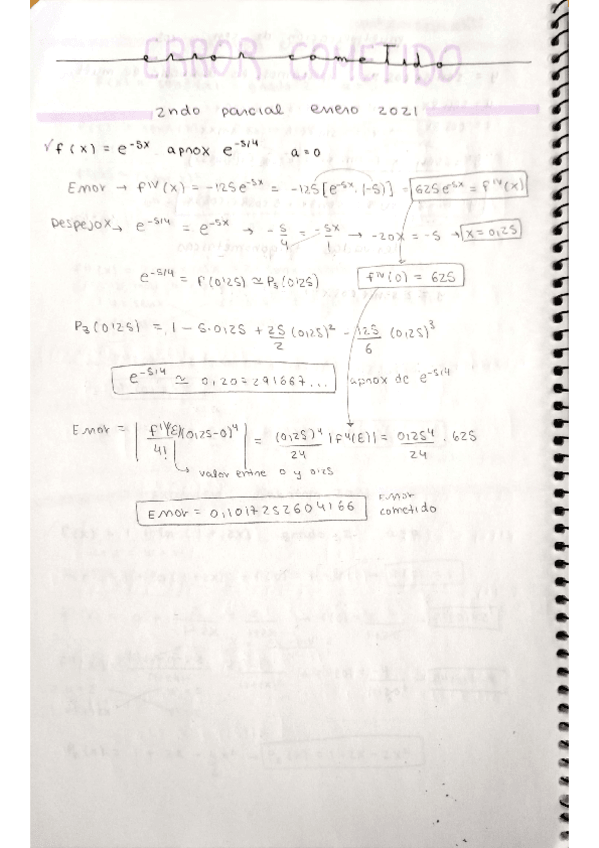 ERROR COMETIDO
error cometido
2ndo parcial enero 2021
√ f(x) = e^-5x aprox e^-5/4 a=0
Error → f^IV(x) = -125e^-5x = -125[e^-5x · (-5)] = 625e^-5x = f^IV(x)
Despejox → e^-5/4 = e^-5x → -5/4 = -5x/1 → -20x = -5 → x = 0,25
e^-5/4 = f(0,25) ≃ P₃(0,25) f^IV(0) = 625
P₃(0,25) = 1 - 5·0,25 + 25/2 (0,25)² - 125/6 (0,25)³
e^-5/4 ≃ 0,20 291667... aprox de e^-5/4
Error = | f^IV(ε)(0,25-0)⁴ / 4! | = (0,25)⁴/24 |f⁴(ε)| = 0,25⁴/24 · 625
↳ valor entre 0 y 0,25
Error = 0,1017252604166 Error
cometido